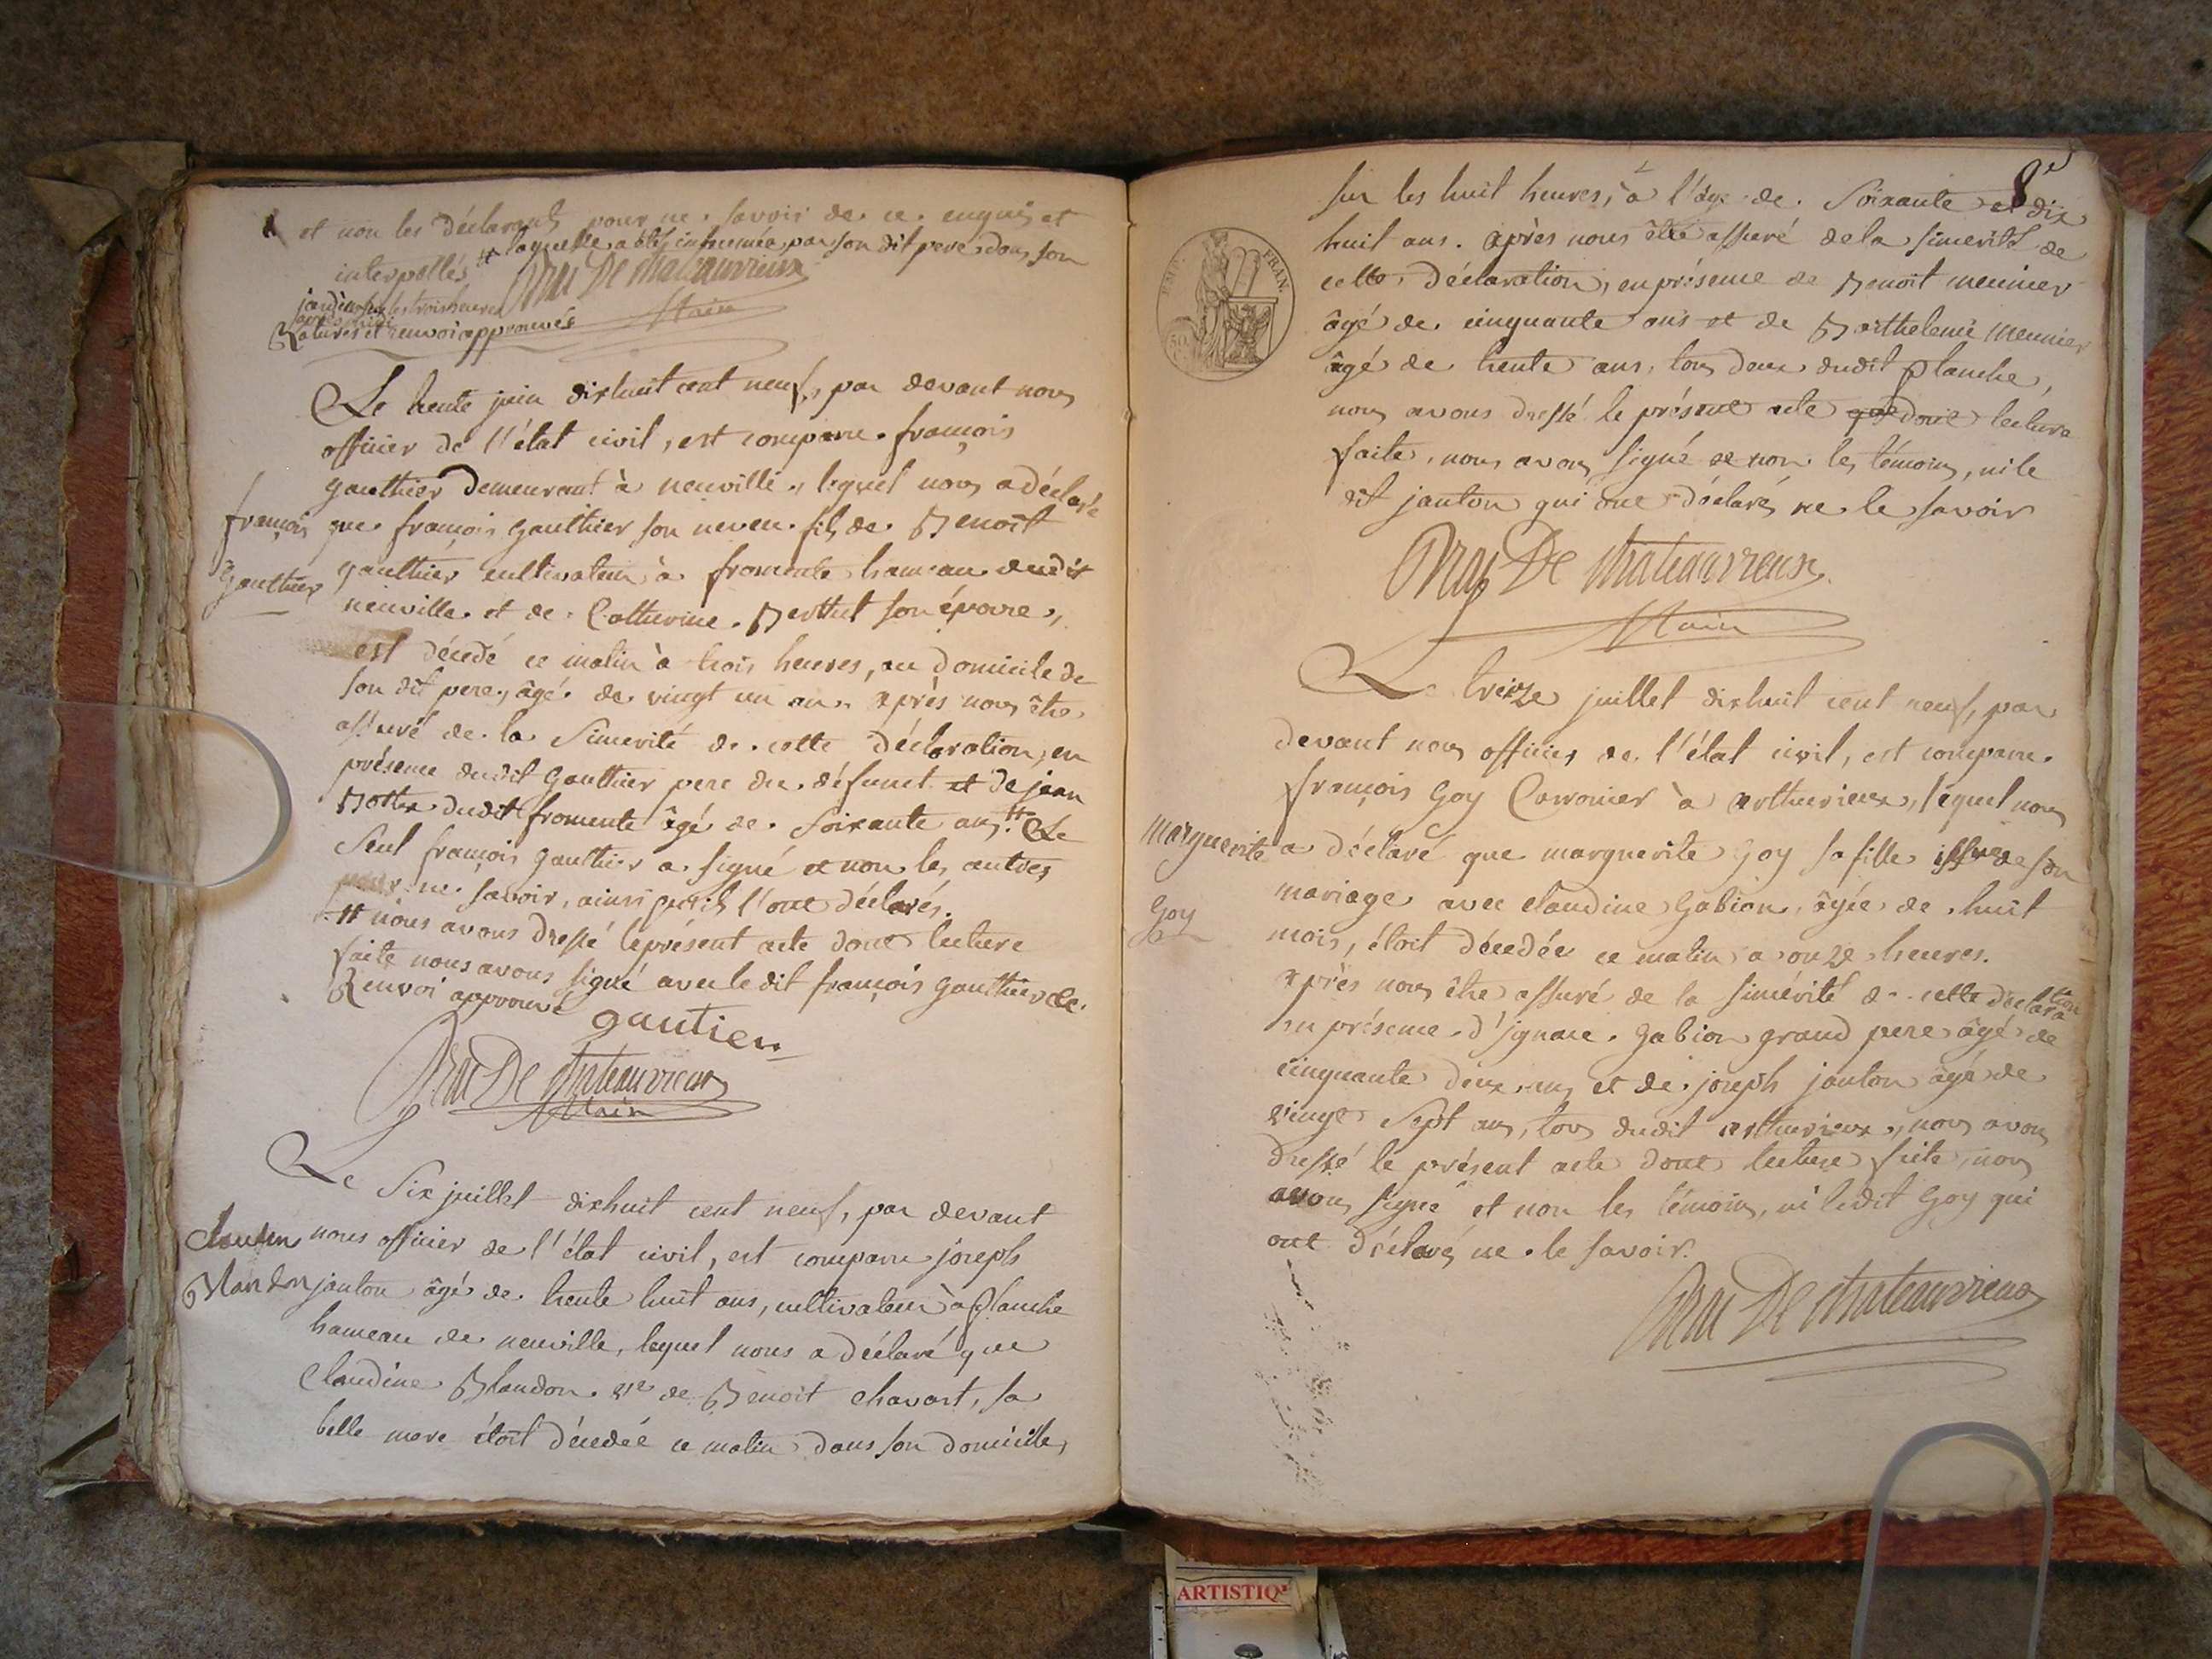 et non les déclarants pour ne savoir de ce enquis et
interpellés # laquelle a été inhumée par son dit pere dans son
jardin sur les trois heures
après midi
Ratures et renvoi approuvés
Le trente juin dix huit cent neuf, par devant nous
officier de l'état civil, est comparu françois
gauthier demeurant à neuville, lequel nous a déclaré
françois
que françois gauthier son neveu fils de Benoît
Gauthier
gauthier cultivateur à fromente hameau dudit
neuville et de Catherine Berthet son épouse,
est décedé ce matin à trois heures, au domicile de
son dit pere, âgé de vingt un an. après nous être
assuré de la sincerité de cette déclaration, en
présence dudit gauthier pere du défunt et de jean
dudit fromente âgé de soixante ans # Le
seul françois gauthier a signé et non les autres
pour ne savoir, ainsi qu'ils l'ont déclarés.
# nous avons dressé le présent acte dont lecture
faite nous avons signé avec le dit françois gauthier Le
Renvoi approuvé
gautier
Le Six juillet dixhuit cent neuf, par devant
nous officier de l'état civil, est comparu joseph
Blandon
janton âgé de trente huit ans, cultivateur à Planche
hameau de neuville, lequel nous a déclaré que
Claudine Blandon ve de Benoit chavart, sa
belle mere étoit décedée ce matin dans son domicile,
8e
sur les huit heures, à l'âge de Soixante et dix
huit ans. après nous être assuré de la sincerité de
cette déclaration, en présence de Benoît meunier
âgé de cinquante ans et de Barthelemi meunier
âgé de trente ans, tous deux dudit Planche,
nous avons dressé le présent acte que dont lecture
faite, nous avons signé et non les témoins, ni le
dit janton qui ont déclarés ne le savoir
FRAN.
50
Le treize juillet dixhuit cent neuf, par
devant nous officier de l'état civil, est comparu
françois Goy à arthurieux, lequel nous
marguerite
a déclaré que marguerite Goy sa fille issue de son
Goy
mariage avec claudine Gabion, âgée de huit
mois, étoit décedée ce matin à onze heures.
après nous être assuré de la sincérité de cette déclaration
en présence d'ignace Gabion grand pere âgé de
cinquante deux ans et de joseph janton âgé de
vingt Sept ans, tous dudit arthurieux, nous avons
dressé le présent acte dont lecture faite, nous
avons signé et non les témoins, ni ledit Goy qui
ont déclarés ne le savoir.
ARTISTIQ